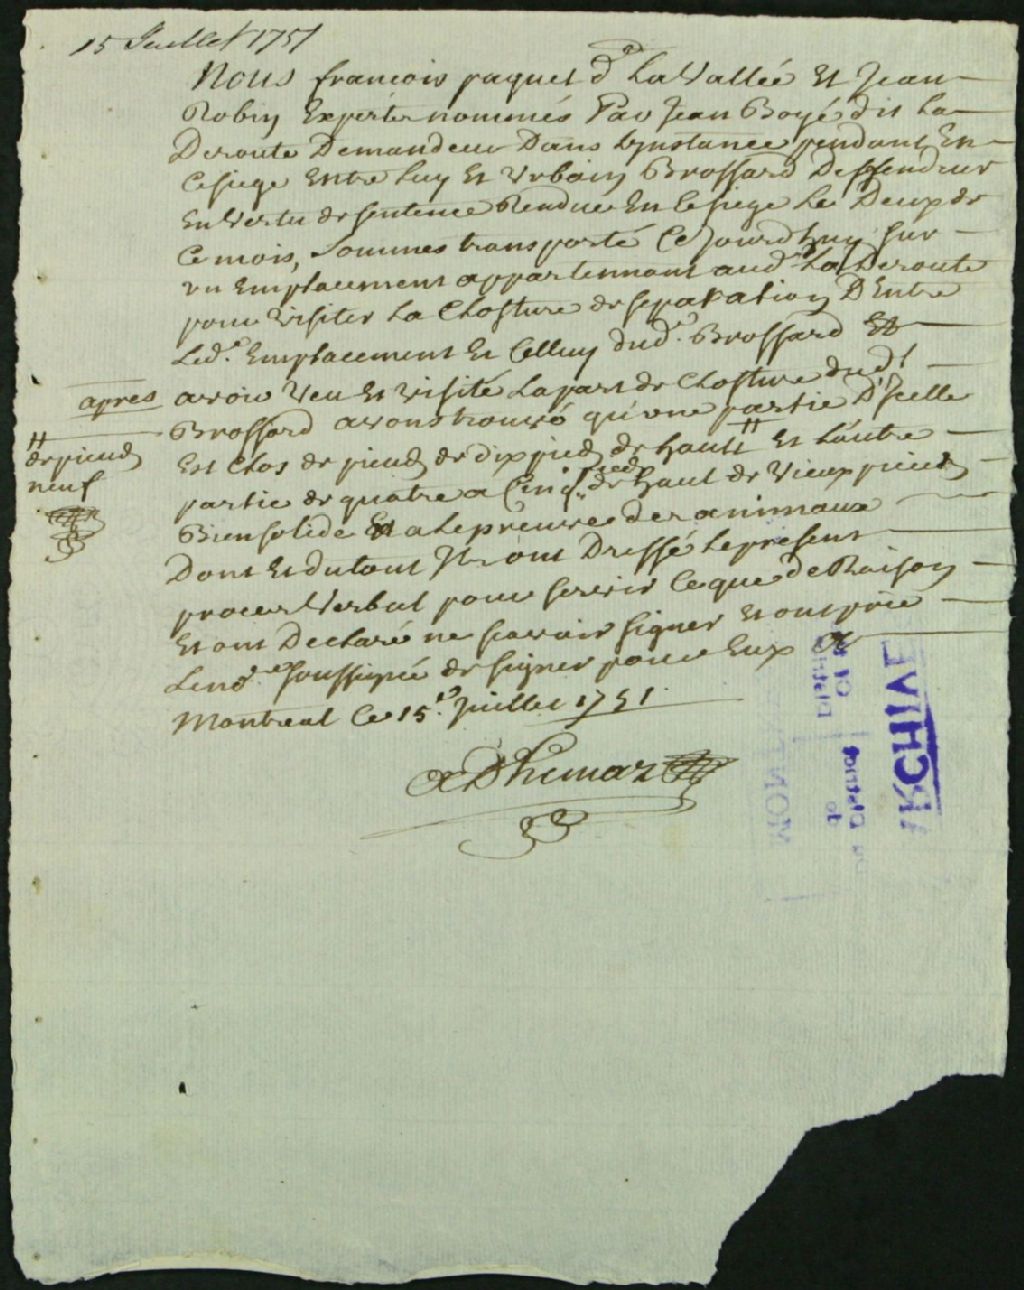 15 Juillet 1751
Nous francois paquet d. La Vallée Et Jean
Robin Experts nommés Par Jean Boyé dit La
Deroute Demandeur Dans Lynstance pendant En
Ce siege Entre luy Et Urbain Brossard Deffendeur
En Vertu de sentence Rendue En Ce siege Le Deux de
Ce mois, Sommes transporté Ce Jourdhuy sur
un Emplacement appartennant aud. La Deroute
pour visiter La Closture de separation D'Entre
Led. Emplacement Et Celluy dud. Brossard Et
après
avoir Veu Et visité La part de Closture dud.
Brossard avons trouvé qu'une partie D'Jcelle
Est Clos de pieux de dix pieds de hault # Et L'autre
# de pieux
neuf
partie de quatre a Cinq pieds de haut de vieux pieux
Bien solide Et a Lepreuve des animaux
Dont Et du tout Ils ont Dressé Le present
procez Verbal pour servir Ce que de Raison
Et ont Declaré ne scavoir signer Et ont prié
Le no.re soussigné de signer pour Eux A
Montreal Ce 15.e Juillet 1751.
Adhemar
ARCHIVE
District
du
MONT